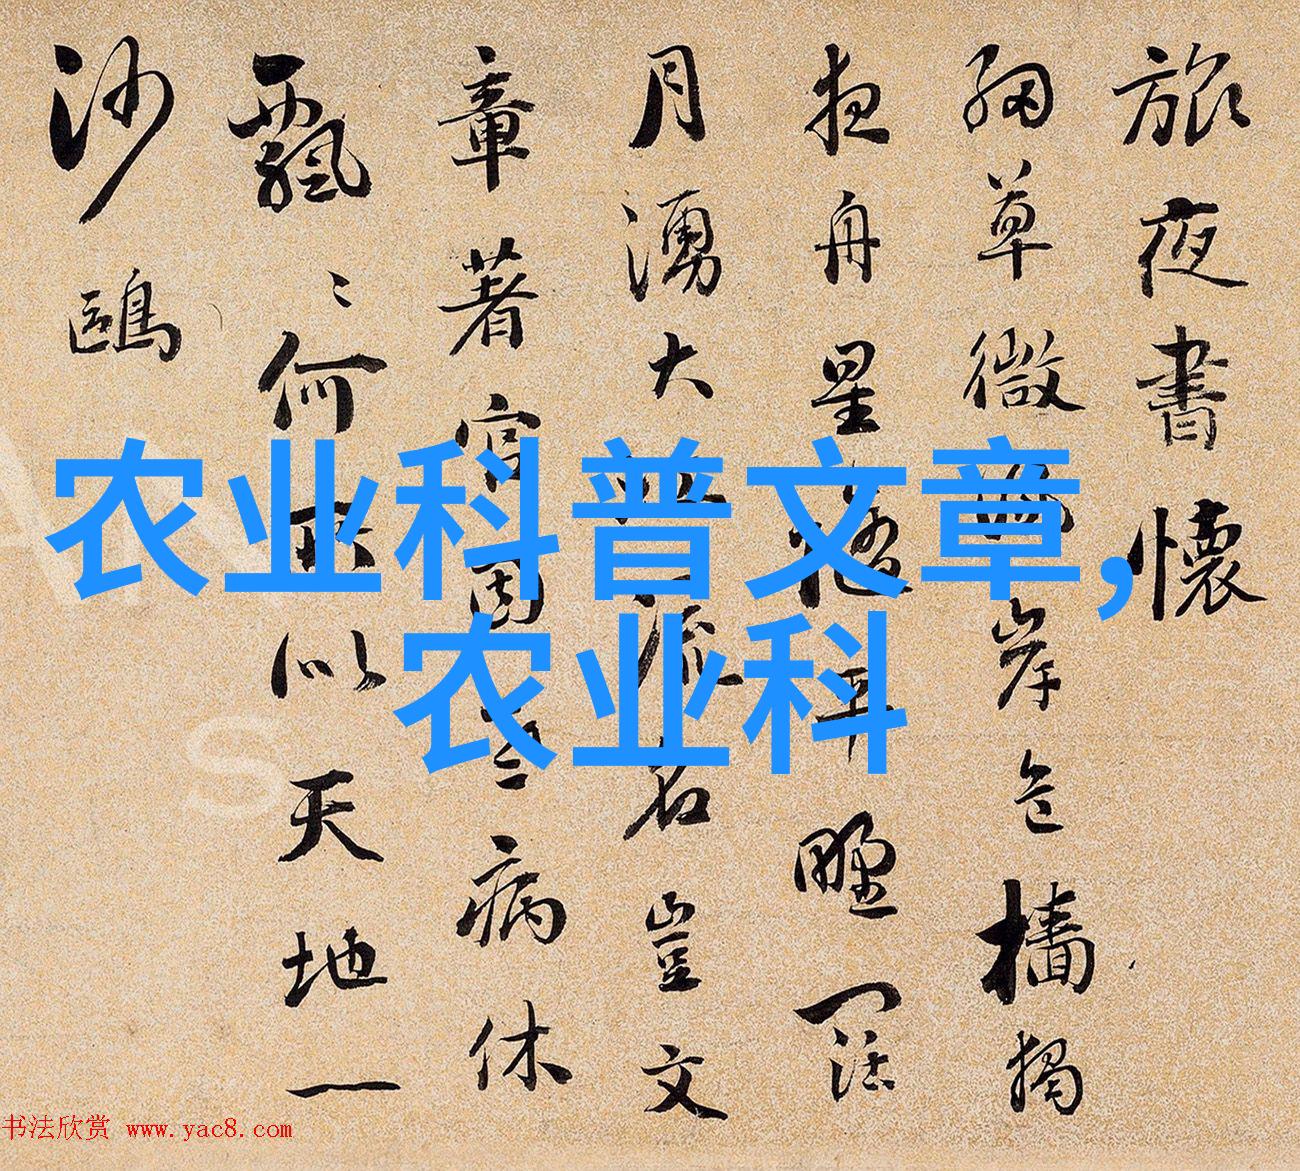 旅夜書懷
細草微風岸危檣獨
夜舟星平野闊
月湧大江流名豈文
章著官因老病休
飄〻何所似天地一
沙鷗
农业科普文章,
农业科
书法欣赏 www.yac8.com